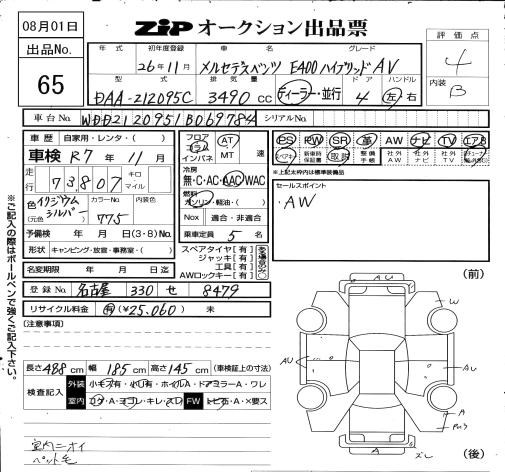 08月01日
ZiP オークション出品票
出品No.
65
評価点
4
内装
B
年式 初年度登録 車名 グレード
26年11月 メルセデスベンツ E400ハイブリッド AV
型式 排気量 ドア ハンドル
DAA-212095C 3490 cc ディーラー・並行 4 左・右
車台No. WDD2120951B069784 シリアルNo.
車歴 自家用・レンタ・( )
車検 R7年 11月
走行 73,807 キロ マイル
色(元色) イリジウムシルバー カラーNo. 775 内装色
予備検 年 月 日(3・8)No.
形状 キャンピング・放宣・事務室・( )
名変期限 年 月 日迄
フロア コラム インパネ AT MT 速
冷房 無・C・AC・AAC・WAC
燃料 ガソリン・軽油・( )
Nox 適合・非適合
乗車定員 5 名
スペアタイヤ[有]
ジャッキ[有]
工具[有]
AWロックキー[有]
PS PW SR 革 AW ナビ TV エアB
スペアキー 新車時保証書 取説 整備手帳 社外AW 社外ナビ 社外TV
*上記太枠内は標準装備品
セールスポイント
・AW
登録No. 名古屋 330 せ 8479
リサイクル料金 有(¥25,060) 未
(注意事項)
長さ488cm 幅185cm 高さ145cm (車検証上の寸法)
検査記入 外装 小キズ有・小凹有・ホイルA・ドアミラーA・ワレ
室内 コゲ・A・ヨゴレ・キレ・スレ FW トビ石・A・X要ス
室内ニオイ
ペット毛
※ご記入の際はボールペンで強くご記入下さい。
(前)
AU
W
AU
AU
A
A
ズレ
(後)